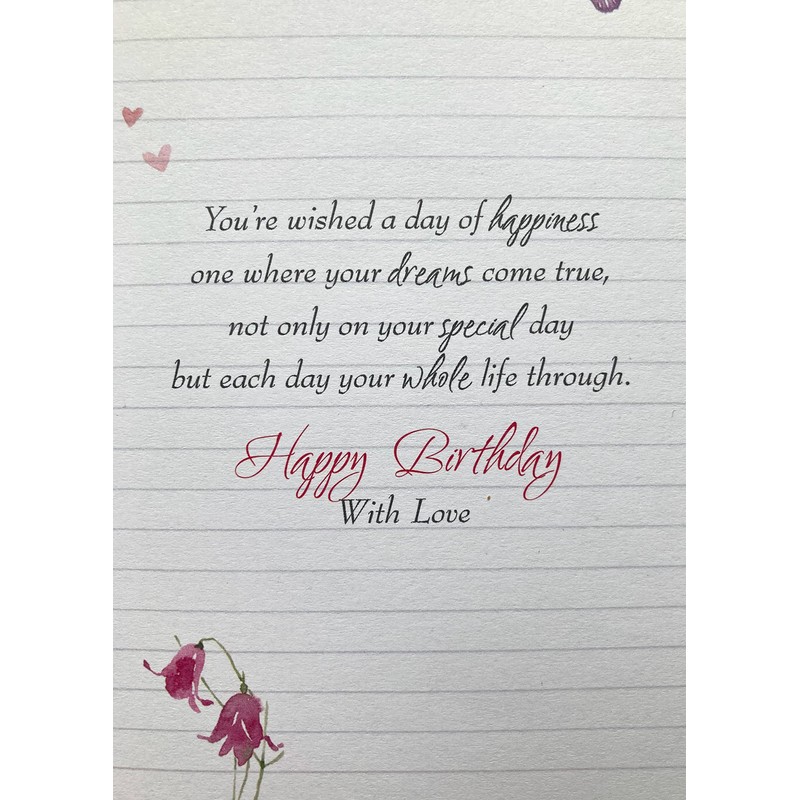 You're wished a day of happiness
one where your dreams come true,
not only on your special day
but each day your whole life through.
Happy Birthday
With Love